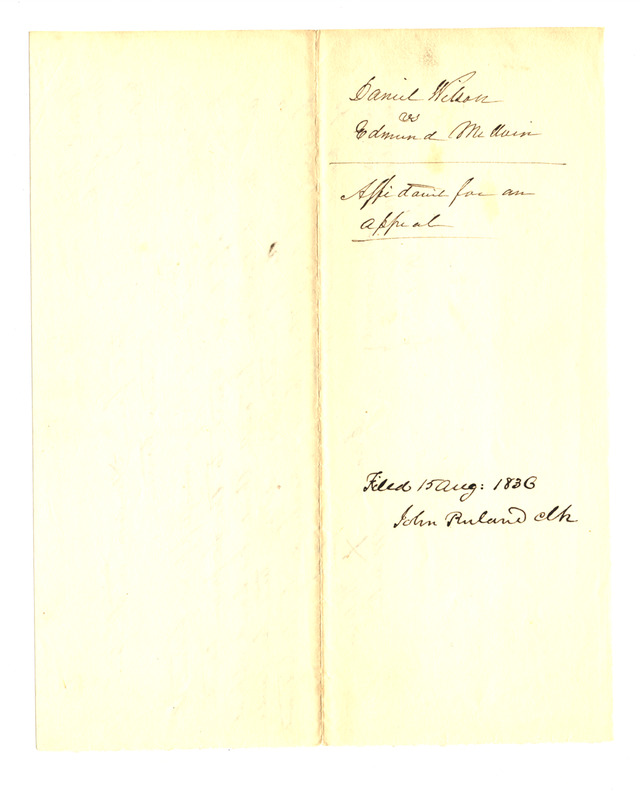 Daniel Wilson
vs
Edmund McIlvain
Affidavit for an
appeal
Filed 15 Aug: 1836
John Ruland clk